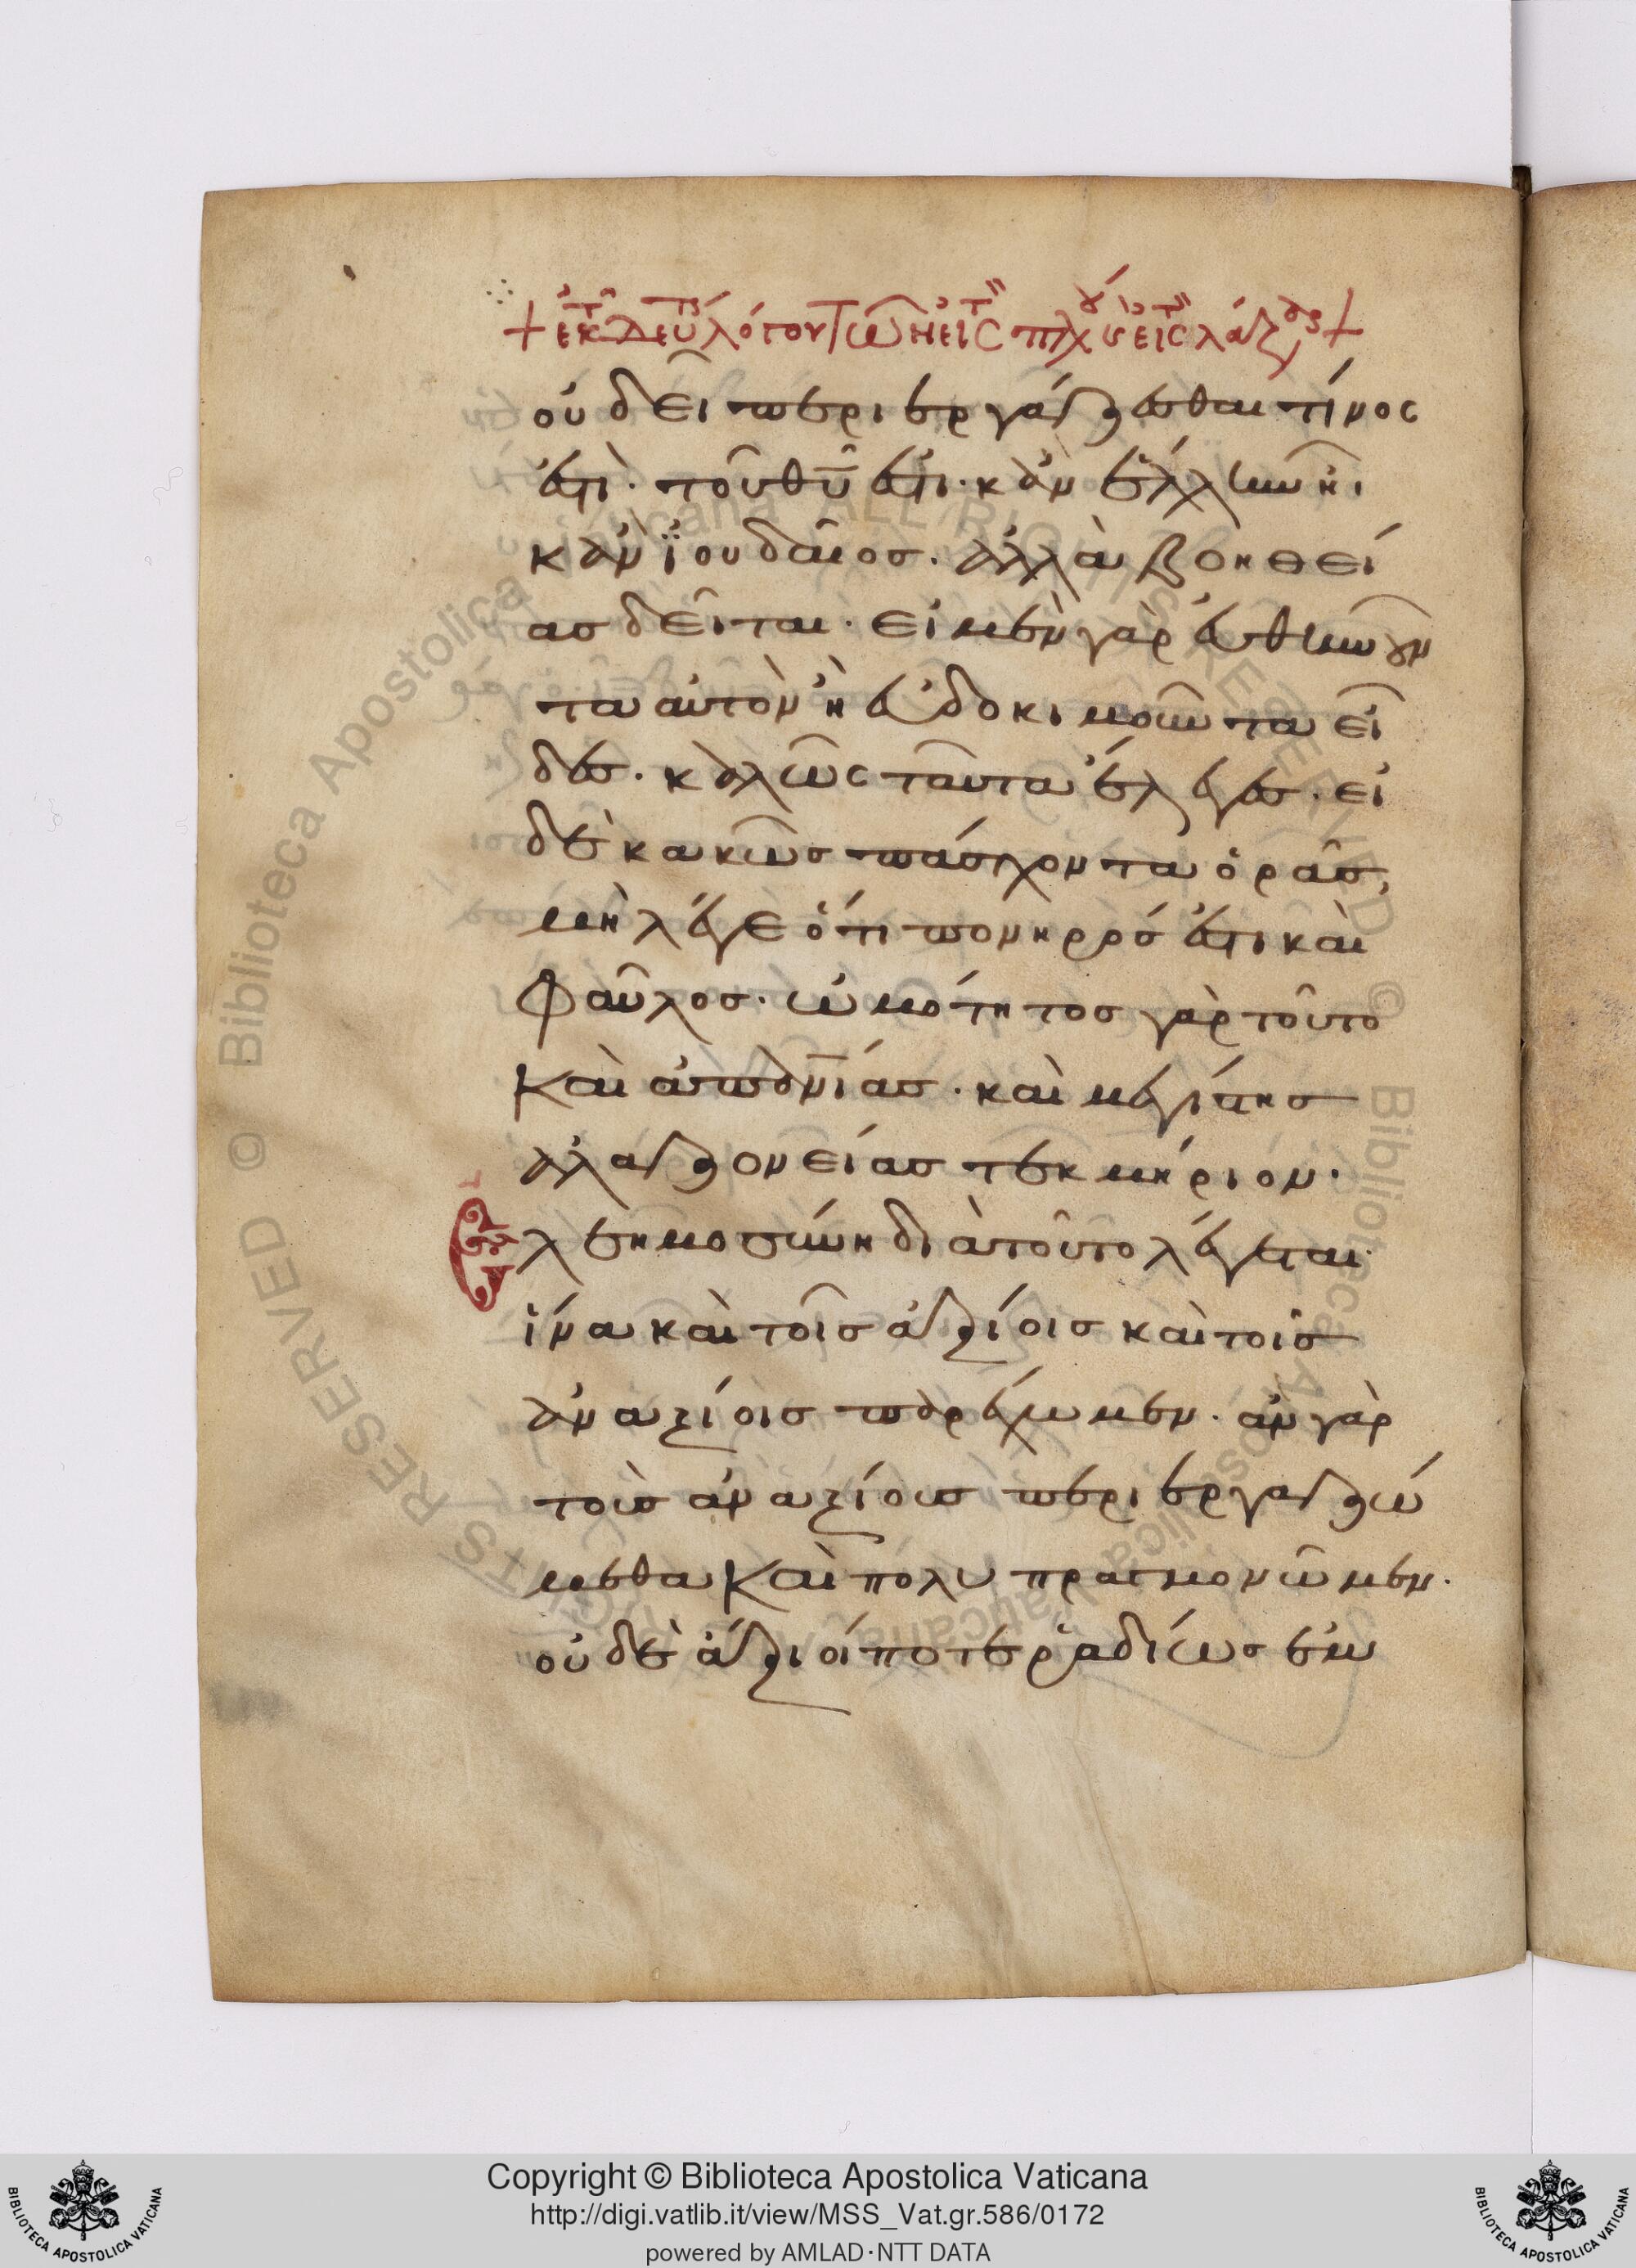 οὐ δεῖ περιεργάζεσθαι τίνος
ἐστὶ· τοῦ θῦ ἐστι· κἂν ἕλλην ᾖ·
κἂν ἰουδαῖος· ἀλλὰ βοηθεί
ας δεῖται· εἰ μὲν γὰρ εὐθηνοῦν
τα αὐτὸν ἢ εὐδοκιμοῦντα εἶ
δες· καλῶς ταῦτα ἔλεγες· εἰ
δὲ κακῶς πάσχοντα ὁρᾶς,
μὴ λέγε ὅτι πονηρός ἐστι καὶ
φαῦλος· ὠμότητος γὰρ τοῦτο
καὶ ἀπονίας· καὶ μεγίστης
ἀλαζονείας τεκμήριον·
Ἐλεημοσύνη διὰ τοῦτο λέγεται·
ἵνα καὶ τοῖς ἀξίοις καὶ τοῖς
ἀναξίοις παρέχωμεν· ἂν γὰρ
τοὺς ἀναξίους περιεργαζώ
μεθα καὶ πολυπραγμονῶμεν·
οὐδὲ ἄξιοί ποτε ῥαδίως ἐμ
Copyright © Biblioteca Apostolica Vaticana
http://digi.vatlib.it/view/MSS_Vat.gr.586/0172
powered by AMLAD·NTT DATA
BIBLIOTECA APOSTOLICA VATICANA
BIBLIOTECA APOSTOLICA VATICANA